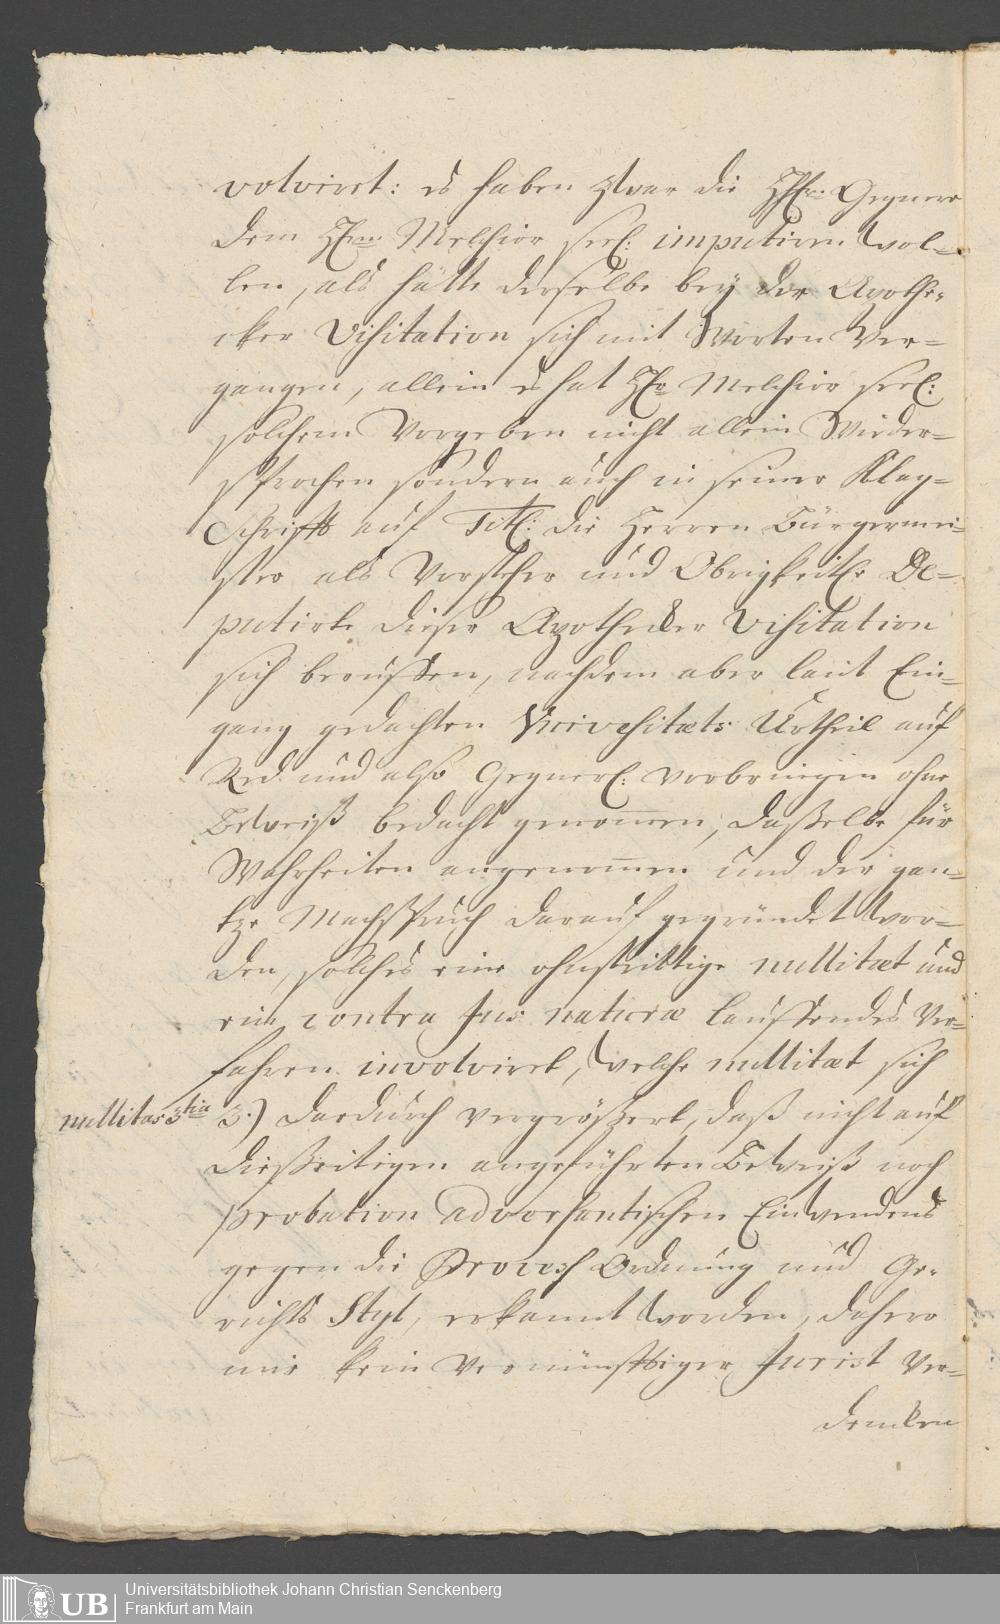 volviret: es haben zwar die HHrn. Gegnere
dem Hrn. Melchior seel: imputiren wol-
len, als hätte derselbe bey der Apothe-
cker Visitation sich mit Worten ver-
gangen, allein es hat Hr. Melchior seel:
solchem Vorgeben nicht allein wieder-
sprochen sondern auch in seiner Klag-
Schrifft auf Titl: die Herren Bürgermei-
ster als Vorsteher und Obrigkeitl: De-
putirte dieser Apothecker Visitation
sich beruffen, nachdem aber laut Ein-
gang gedachten Universitæts Urtheil auf
Red und also Gegnerl: vorbringen ohne
Beweiß bedacht genommen, daßelbe für
Wahrheiten angenommen und der gan-
tze Machtspruch darauf gegründet wor-
den, solches eine ohnstrittige nullitæt und
ein contra Jus naturæ lauffendes Ver-
fahren involviret, welche nullitæt sich
nullitas 3tia 3.) dardurch vergrößert, daß nicht auf
dießeitigen angeführten Beweiß noch
probation adversantischen Einwendens
gegen die Process Ordnung und Ge-
richts Styl, erkannt worden, dahero
mir kein vernünfftiger Jurist ver-
dencken
Universitätsbibliothek Johann Christian Senckenberg
UB Frankfurt am Main